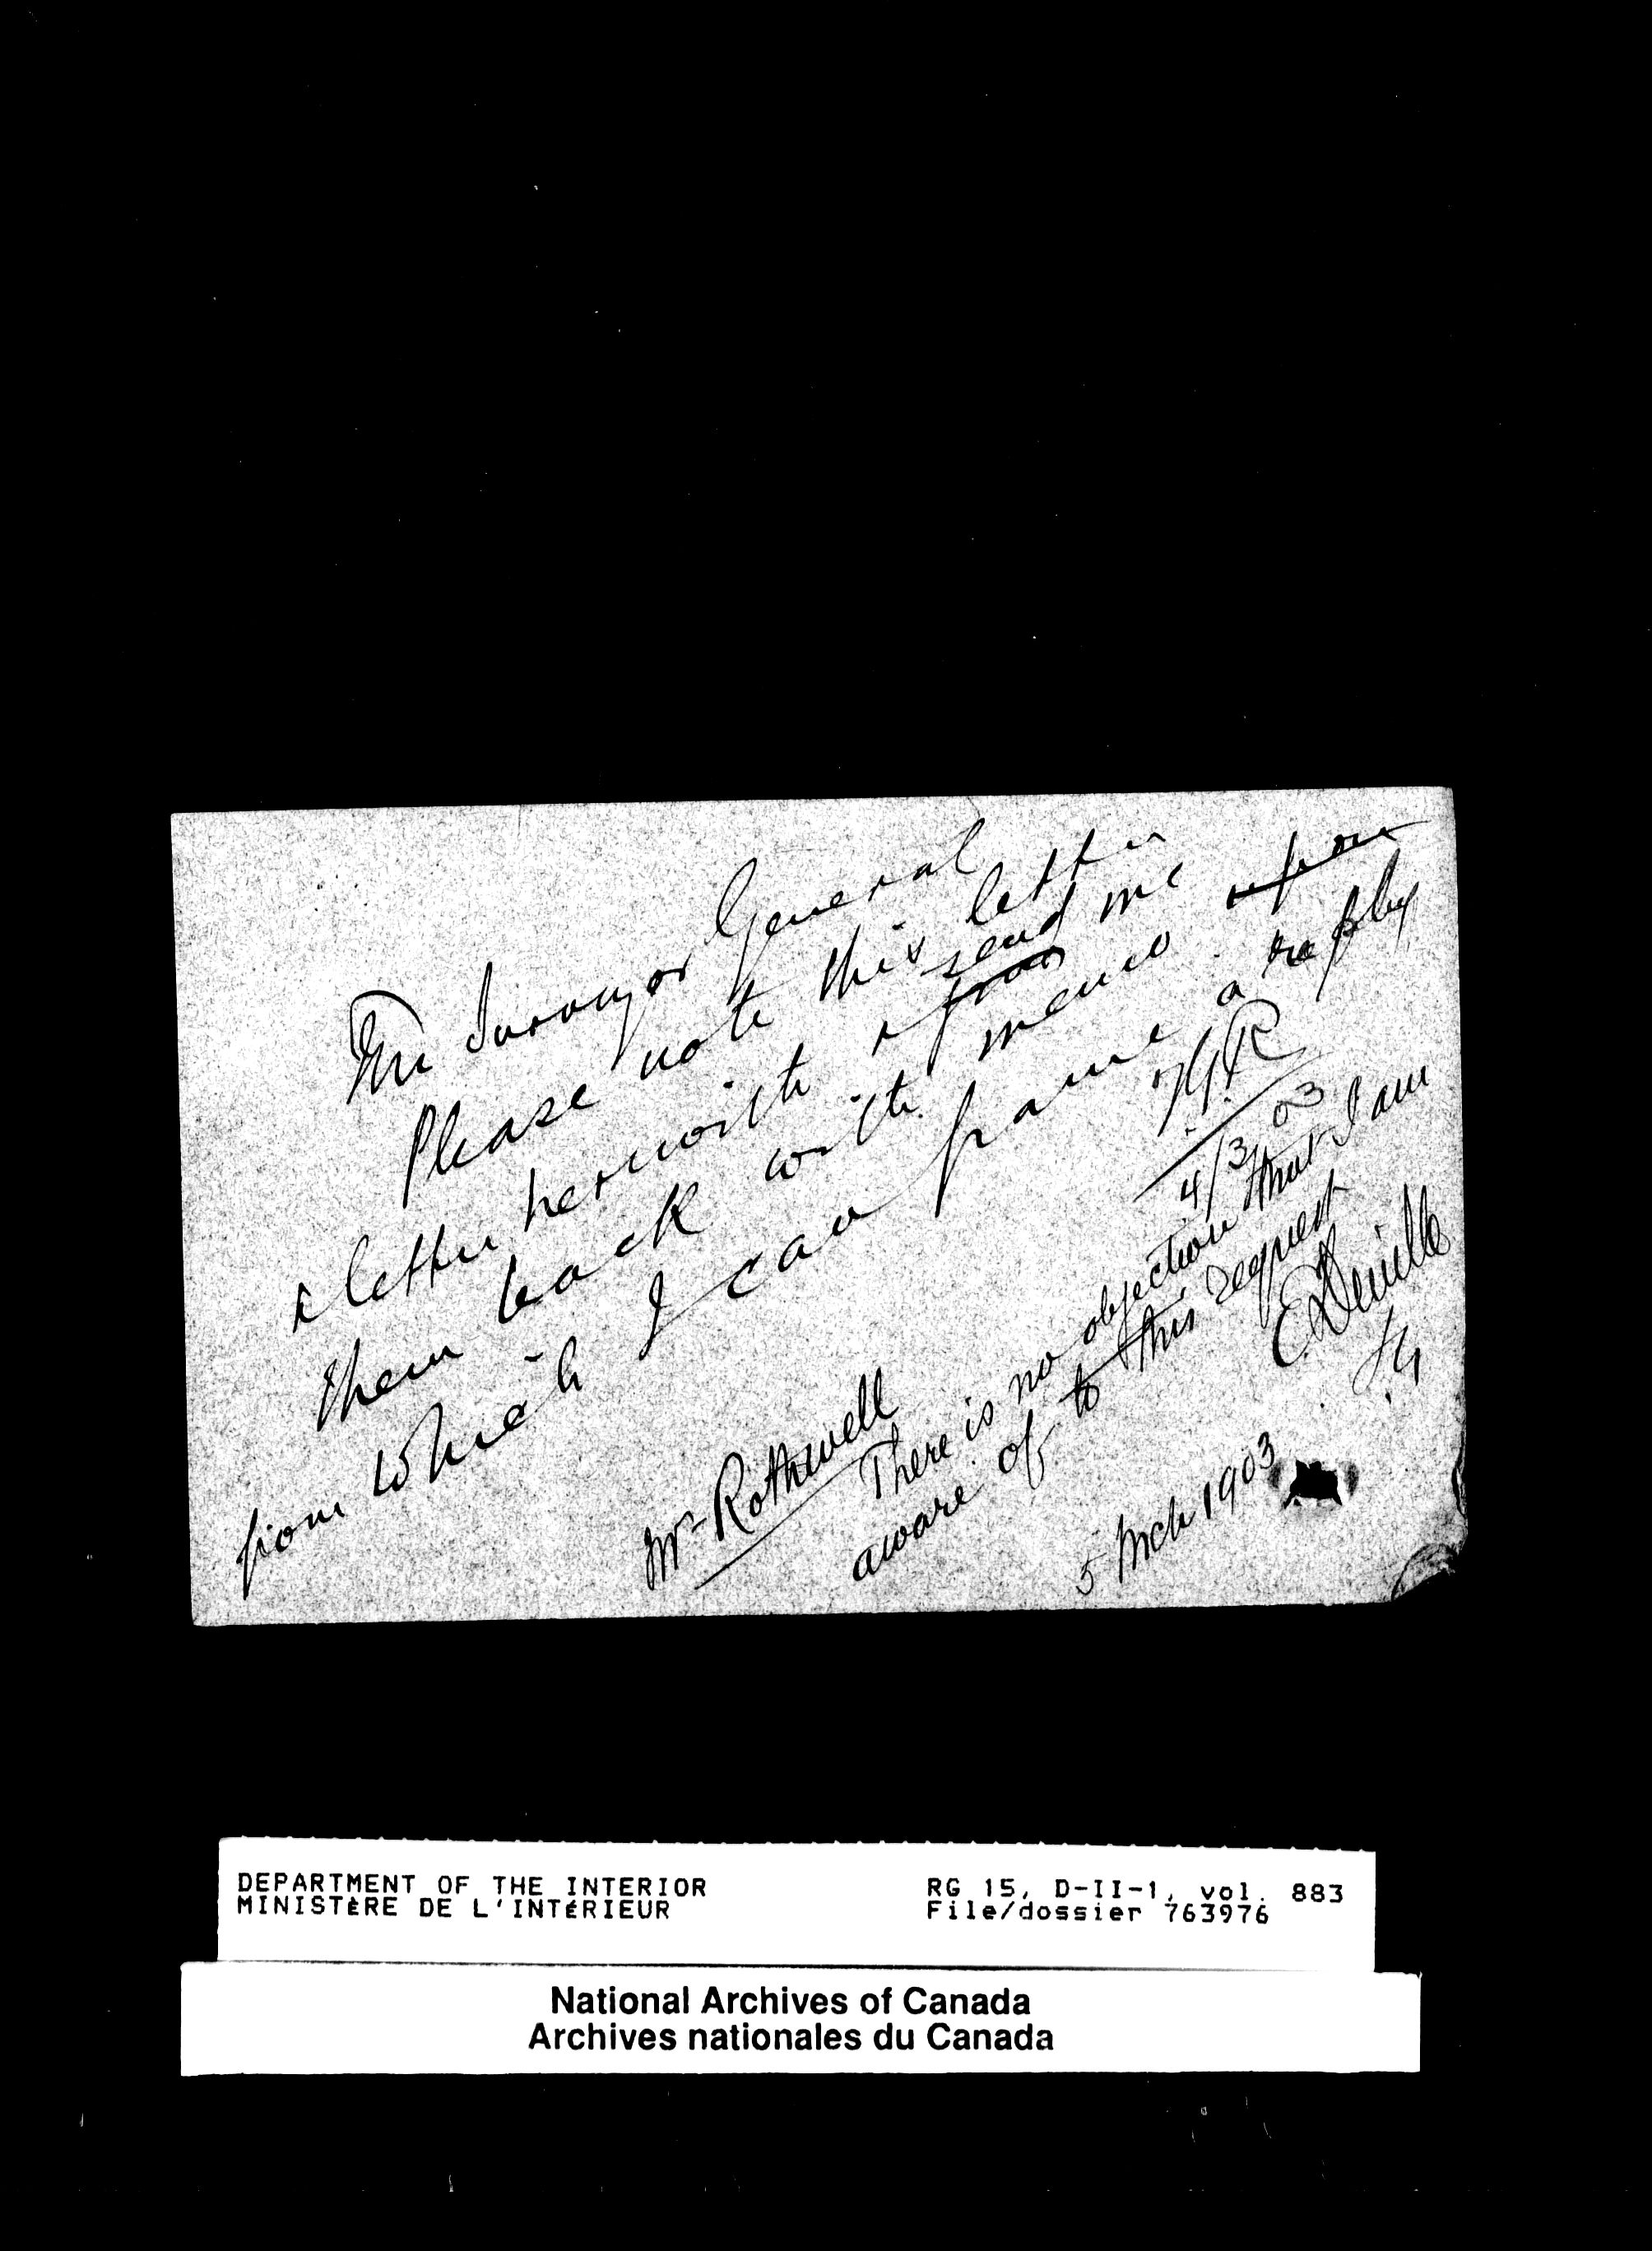 The Surveyor General
Please note this letter
& letter herewith & send me
them back with memo
from which I can frame a reply
4/3/03
Mr Rothwell
There is no objection that I am
aware of to this request
E. Deville
S.G.
5 Mch 1903
DEPARTMENT OF THE INTERIOR
MINISTÈRE DE L'INTÉRIEUR
RG 15, D-II-1, vol. 883
File/dossier 763976
National Archives of Canada
Archives nationales du Canada